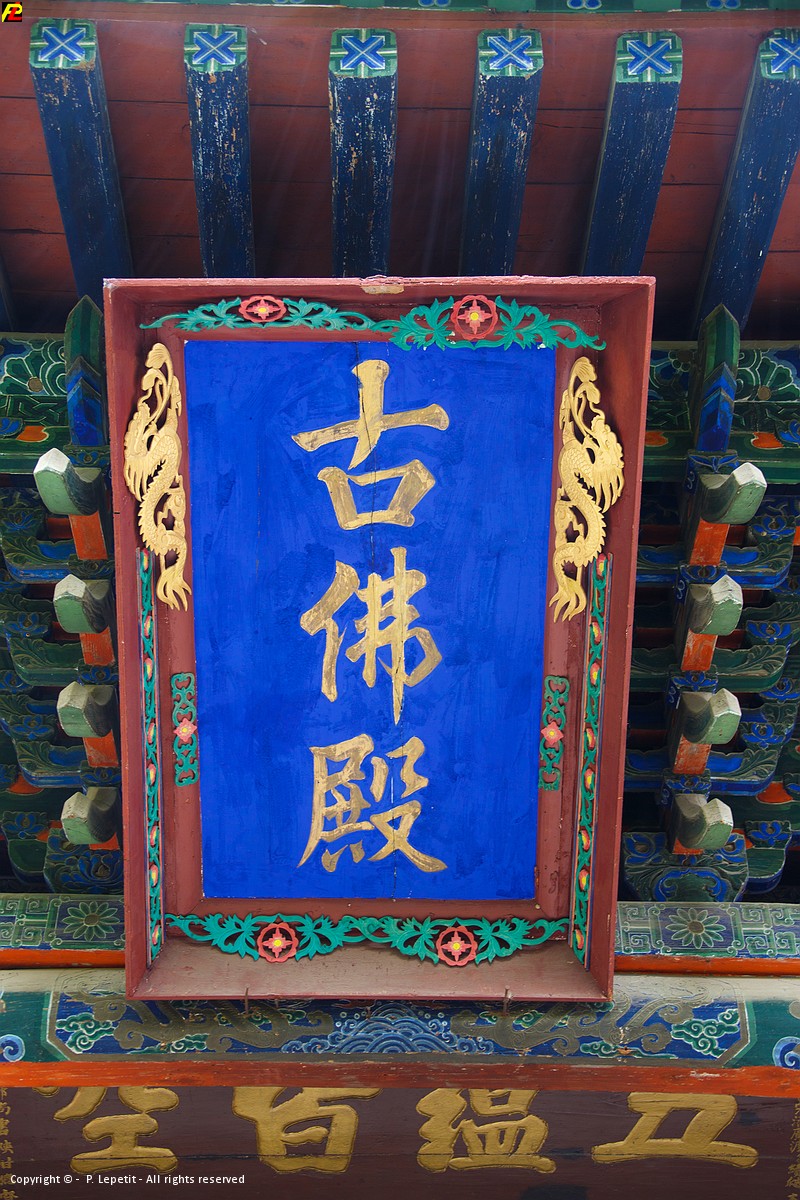 古佛殿
五蘊皆空
Copyright © - P. Lepetit - All rights reserved